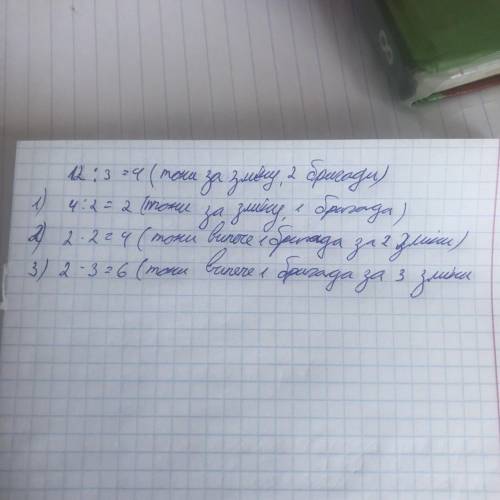 12 : 3 = 4 ( тони за зміну, 2 бригади)
1) 4 : 2 = 2 (тони за зміну, 1 бригада)
2) 2 · 2 = 4 (тони випече 1 бригада за 2 зміни)
3) 2 · 3 = 6 (тони випече 1 бригада за 3 зміни
8